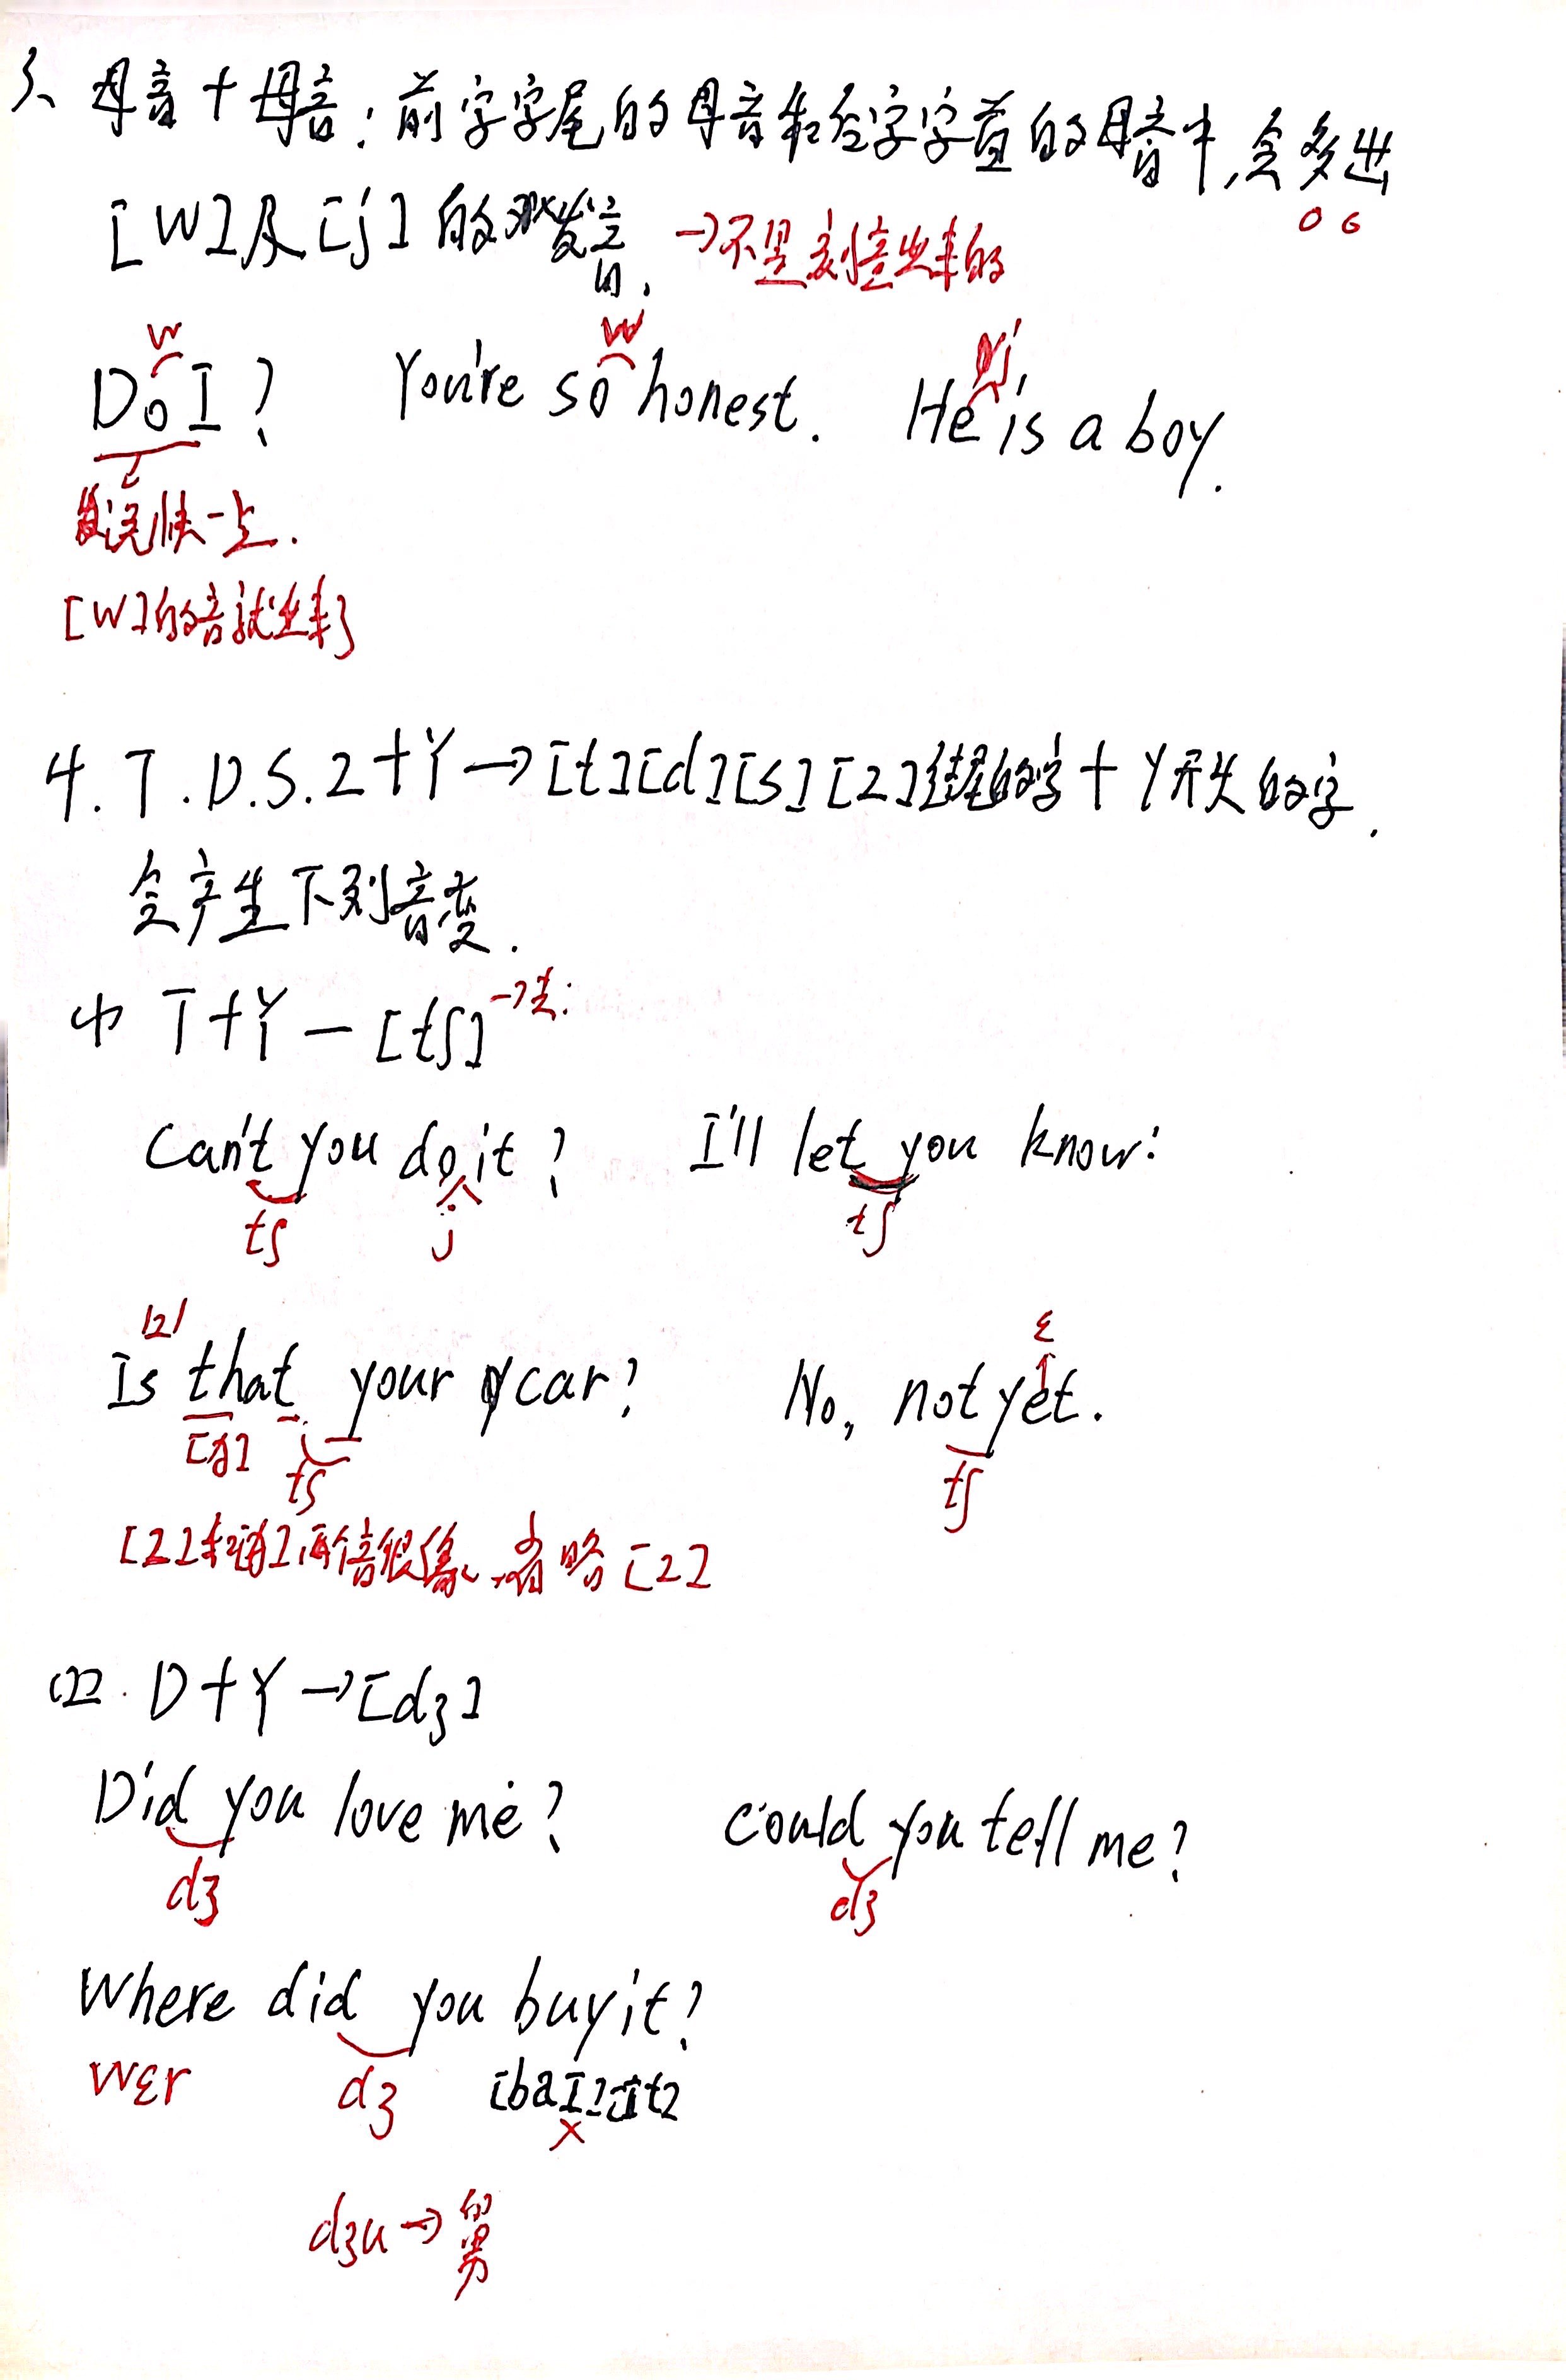 3、母音+母音:前字字尾的母音和后字字首的母音中,会多出
[W]及[j]的发音. →不是刻意出来的
w w j
Do I? You're so honest. He is a boy.
说快一点.
[W]的音就出来了
4. T. D. S. Z + Y → [t][d][s][z]结尾的字 + Y开头的字.
会产生下列音变.
(1) T+Y — [tʃ] →去:
Can't you do it? I'll let you know:
tʃ j tʃ
[z] ε
Is that your car? No, not yet.
[ð] tʃ tʃ
[z]和[ð]两个音很像,省略[z]
(2). D+Y → [dʒ]
Did you love me? Could you tell me?
dʒ dʒ
Where did you buy it?
wεr dʒ [baI] It]
x
dʒu → 舅